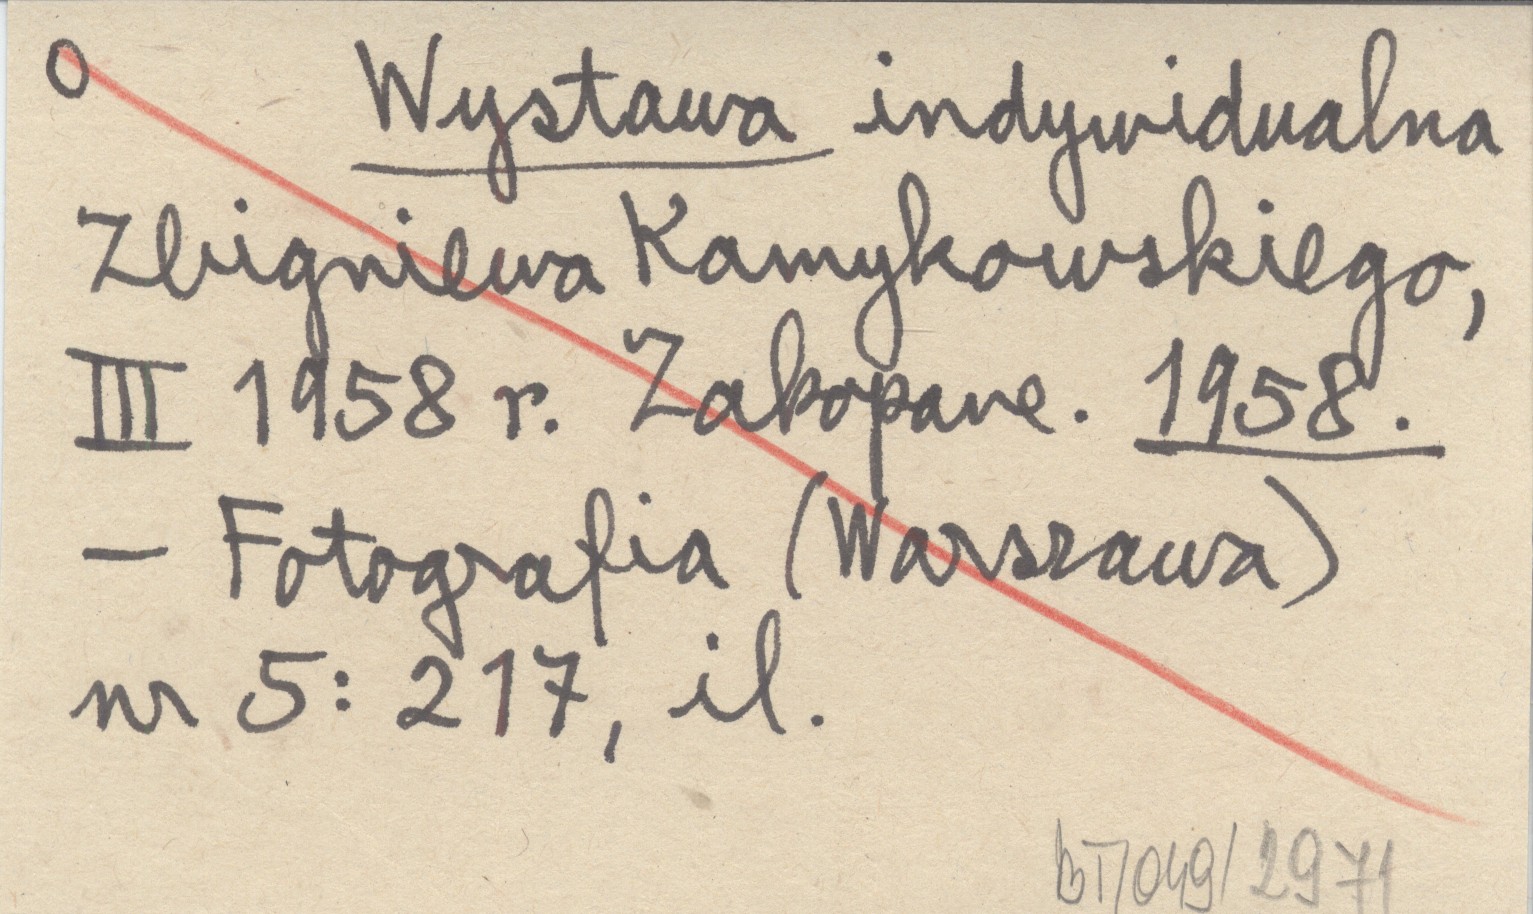 O Wystawa indywidualna
Zbigniewa Kamykowskiego,
III 1958 r. Zakopane. 1958.
— Fotografia (Warszawa)
nr 5: 217, il.
BT/049/2971